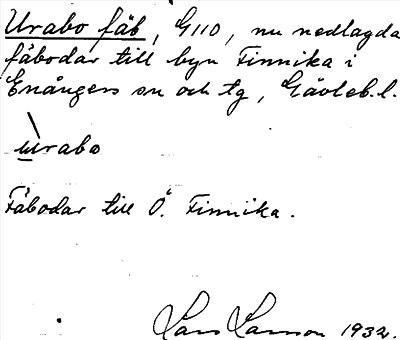 Urabo fäb, G110, nu nedlagda
fäbodar till byn Finnika i
Enångers sn och tg, Gävleb. l.
Urabo
Fäbodar till Ö. Finnika.
Lars Larsson 1932.